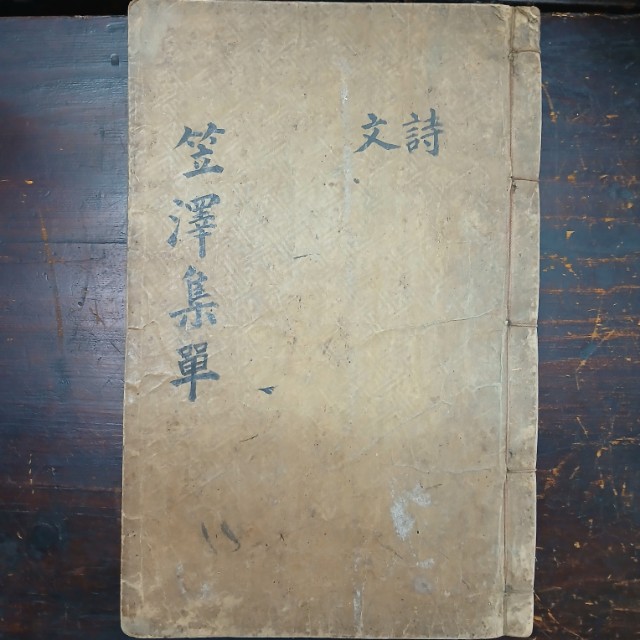 詩
文
笠澤集單